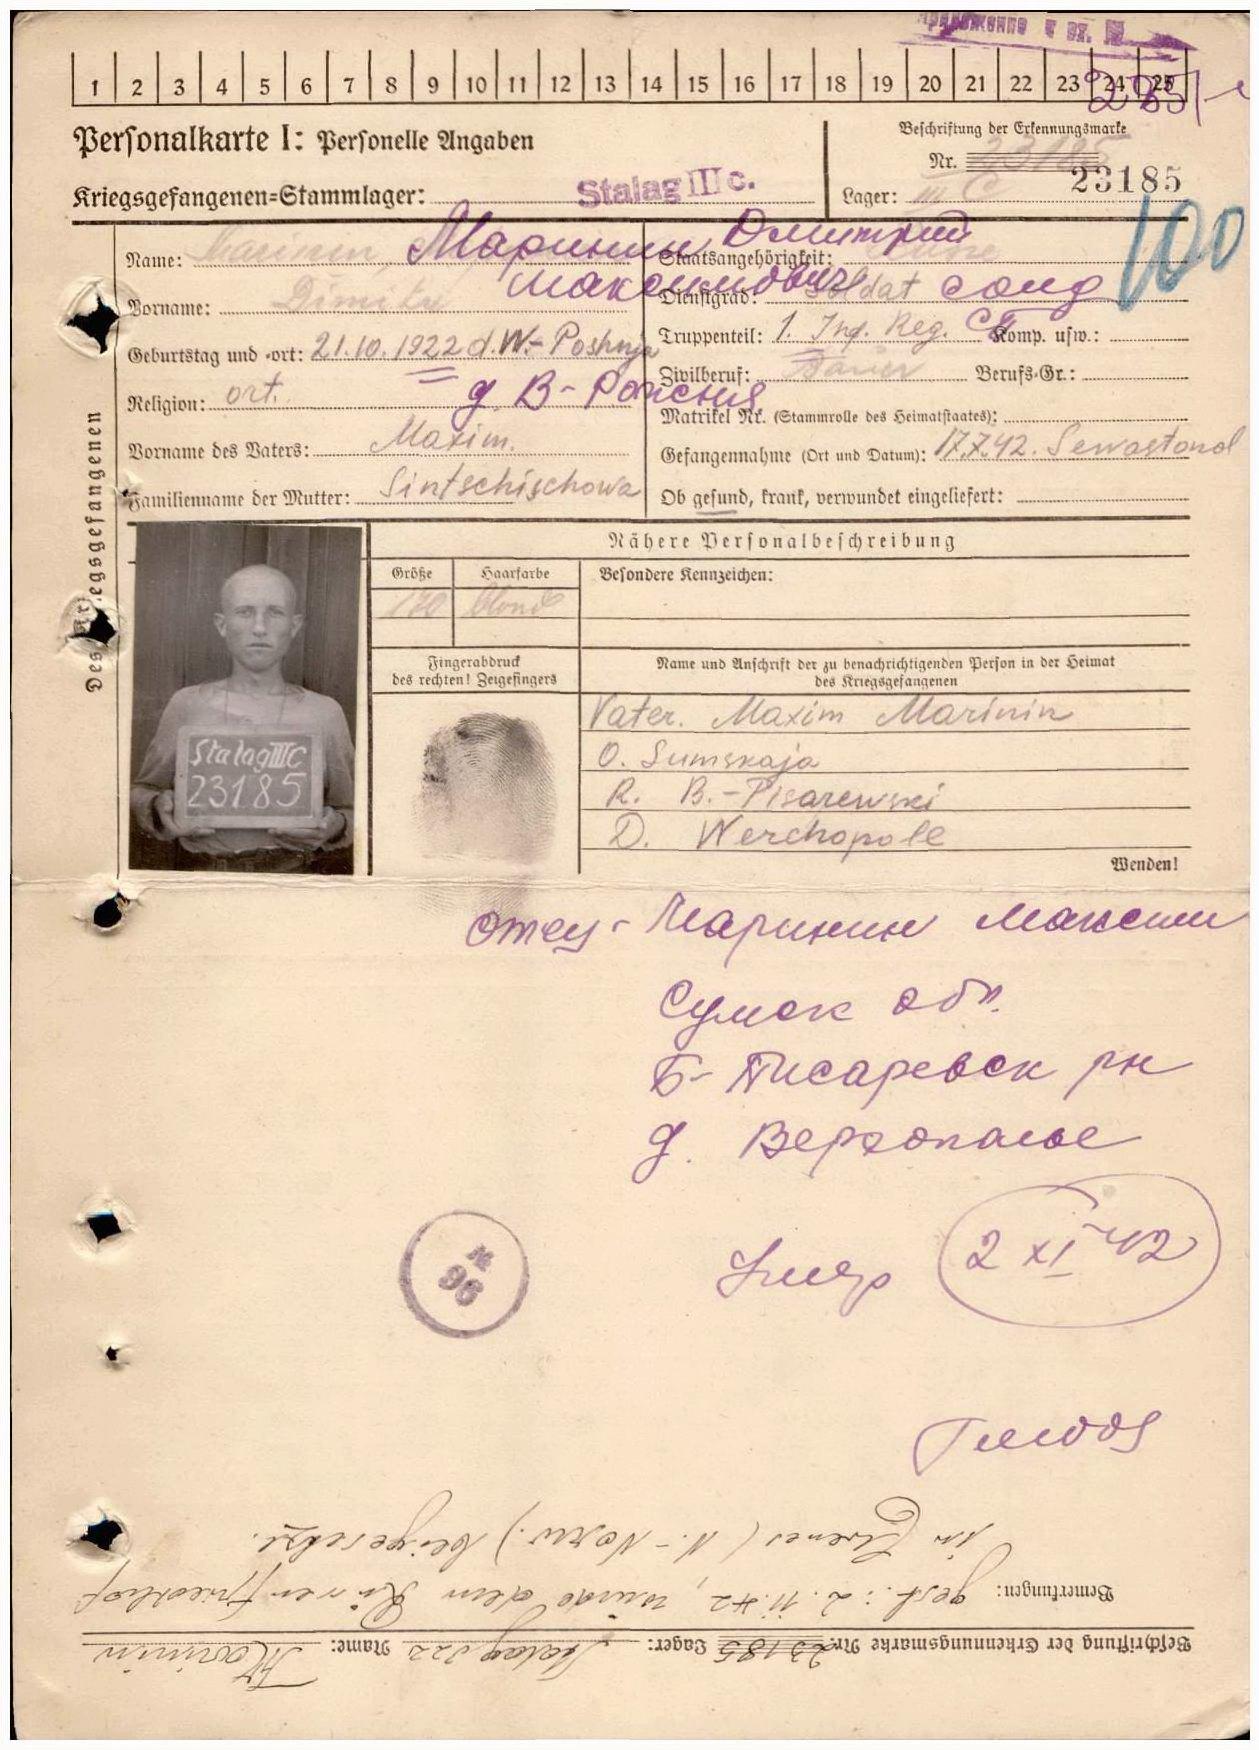 приложение к вх. №
1 2 3 4 5 6 7 8 9 10 11 12 13 14 15 16 17 18 19 20 21 22 23 24 25
Personalkarte I: Personelle Angaben
Beschriftung der Erkennungsmarke
Nr. 23185
23185
Kriegsgefangenen=Stammlager: Stalag III c.
Lager: III C
100
Des Kriegsgefangenen
Name: Marinin Маринин Дмитрий
Максимович
Vorname: Dimitri
Geburtstag und -ort: 21.10.1922 d. W.-Poshnja
д В-Рожсня
Religion: ort.
Vorname des Vaters: Maxim.
Familienname der Mutter: Sintschischowa
Staatsangehörigkeit:
Dienstgrad: Soldat солд
Truppenteil: 1. Inf. Reg. Сп Komp. usw.:
Zivilberuf: Bauer Berufs-Gr.:
Matrikel Nr. (Stammrolle des Heimatstaates):
Gefangennahme (Ort und Datum): 17.7.42. Sewastopol
Ob gesund, krank, verwundet eingeliefert:
Nähere Personalbeschreibung
Größe Haarfarbe Besondere Kennzeichen:
170 blond
Stalag III C
23185
Fingerabdruck
des rechten! Zeigefingers
Name und Anschrift der zu benachrichtigenden Person in der Heimat
des Kriegsgefangenen
Vater. Maxim Marinin
O. Sumskaja
R. B.-Pisarewski
D. Werchopole
Wenden!
отец - Маринин Максим
Сумск обл.
Б-Писаревск рн
д. Верхополье
Умер 2 XI 42
№
96
Beschriftung der Erkennungsmarke Nr. 23185 Lager: Stalag 322 Name: Marinin
Bemerkungen: gest.: 2.11.42, wurde dem Russenfriedhof
in Elvenes (N.-Norw.) beigesetzt.